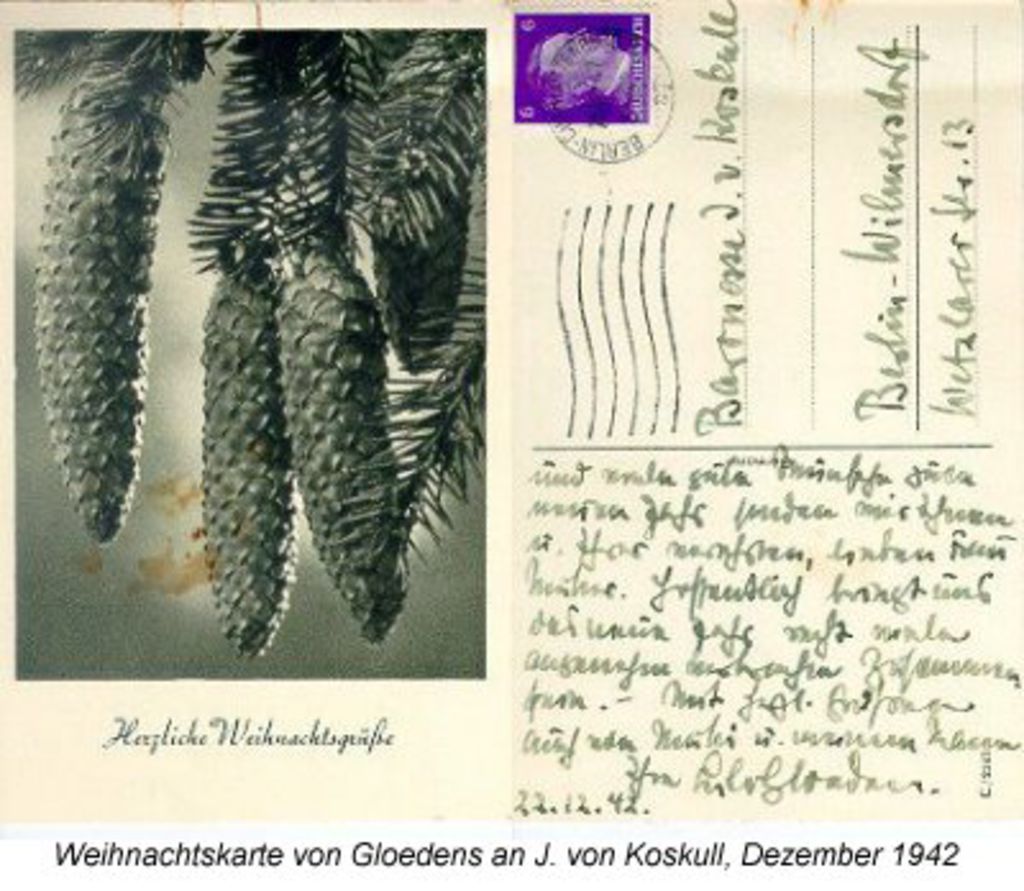 Herzliche Weihnachtsgrüße
6 DEUTSCHES REICH 6
BERLIN-C
Baronesse J. v. Koskull
Berlin-Wilmersdorf
Wetzlarer Str. 13
und viele gute Wünsche zum
neuen Jahr senden wir Ihnen
u. Ihrer verehrten, lieben Frau
Mutter. Hoffentlich bringt uns
das neue Jahr recht viele
Zusammen
sein. - Mit herzl. Grüssen
auch von Mutti u. meinem Mann
Ihre Lilo Gloeden.
22.12.42.
Weihnachtskarte von Gloedens an J. von Koskull, Dezember 1942